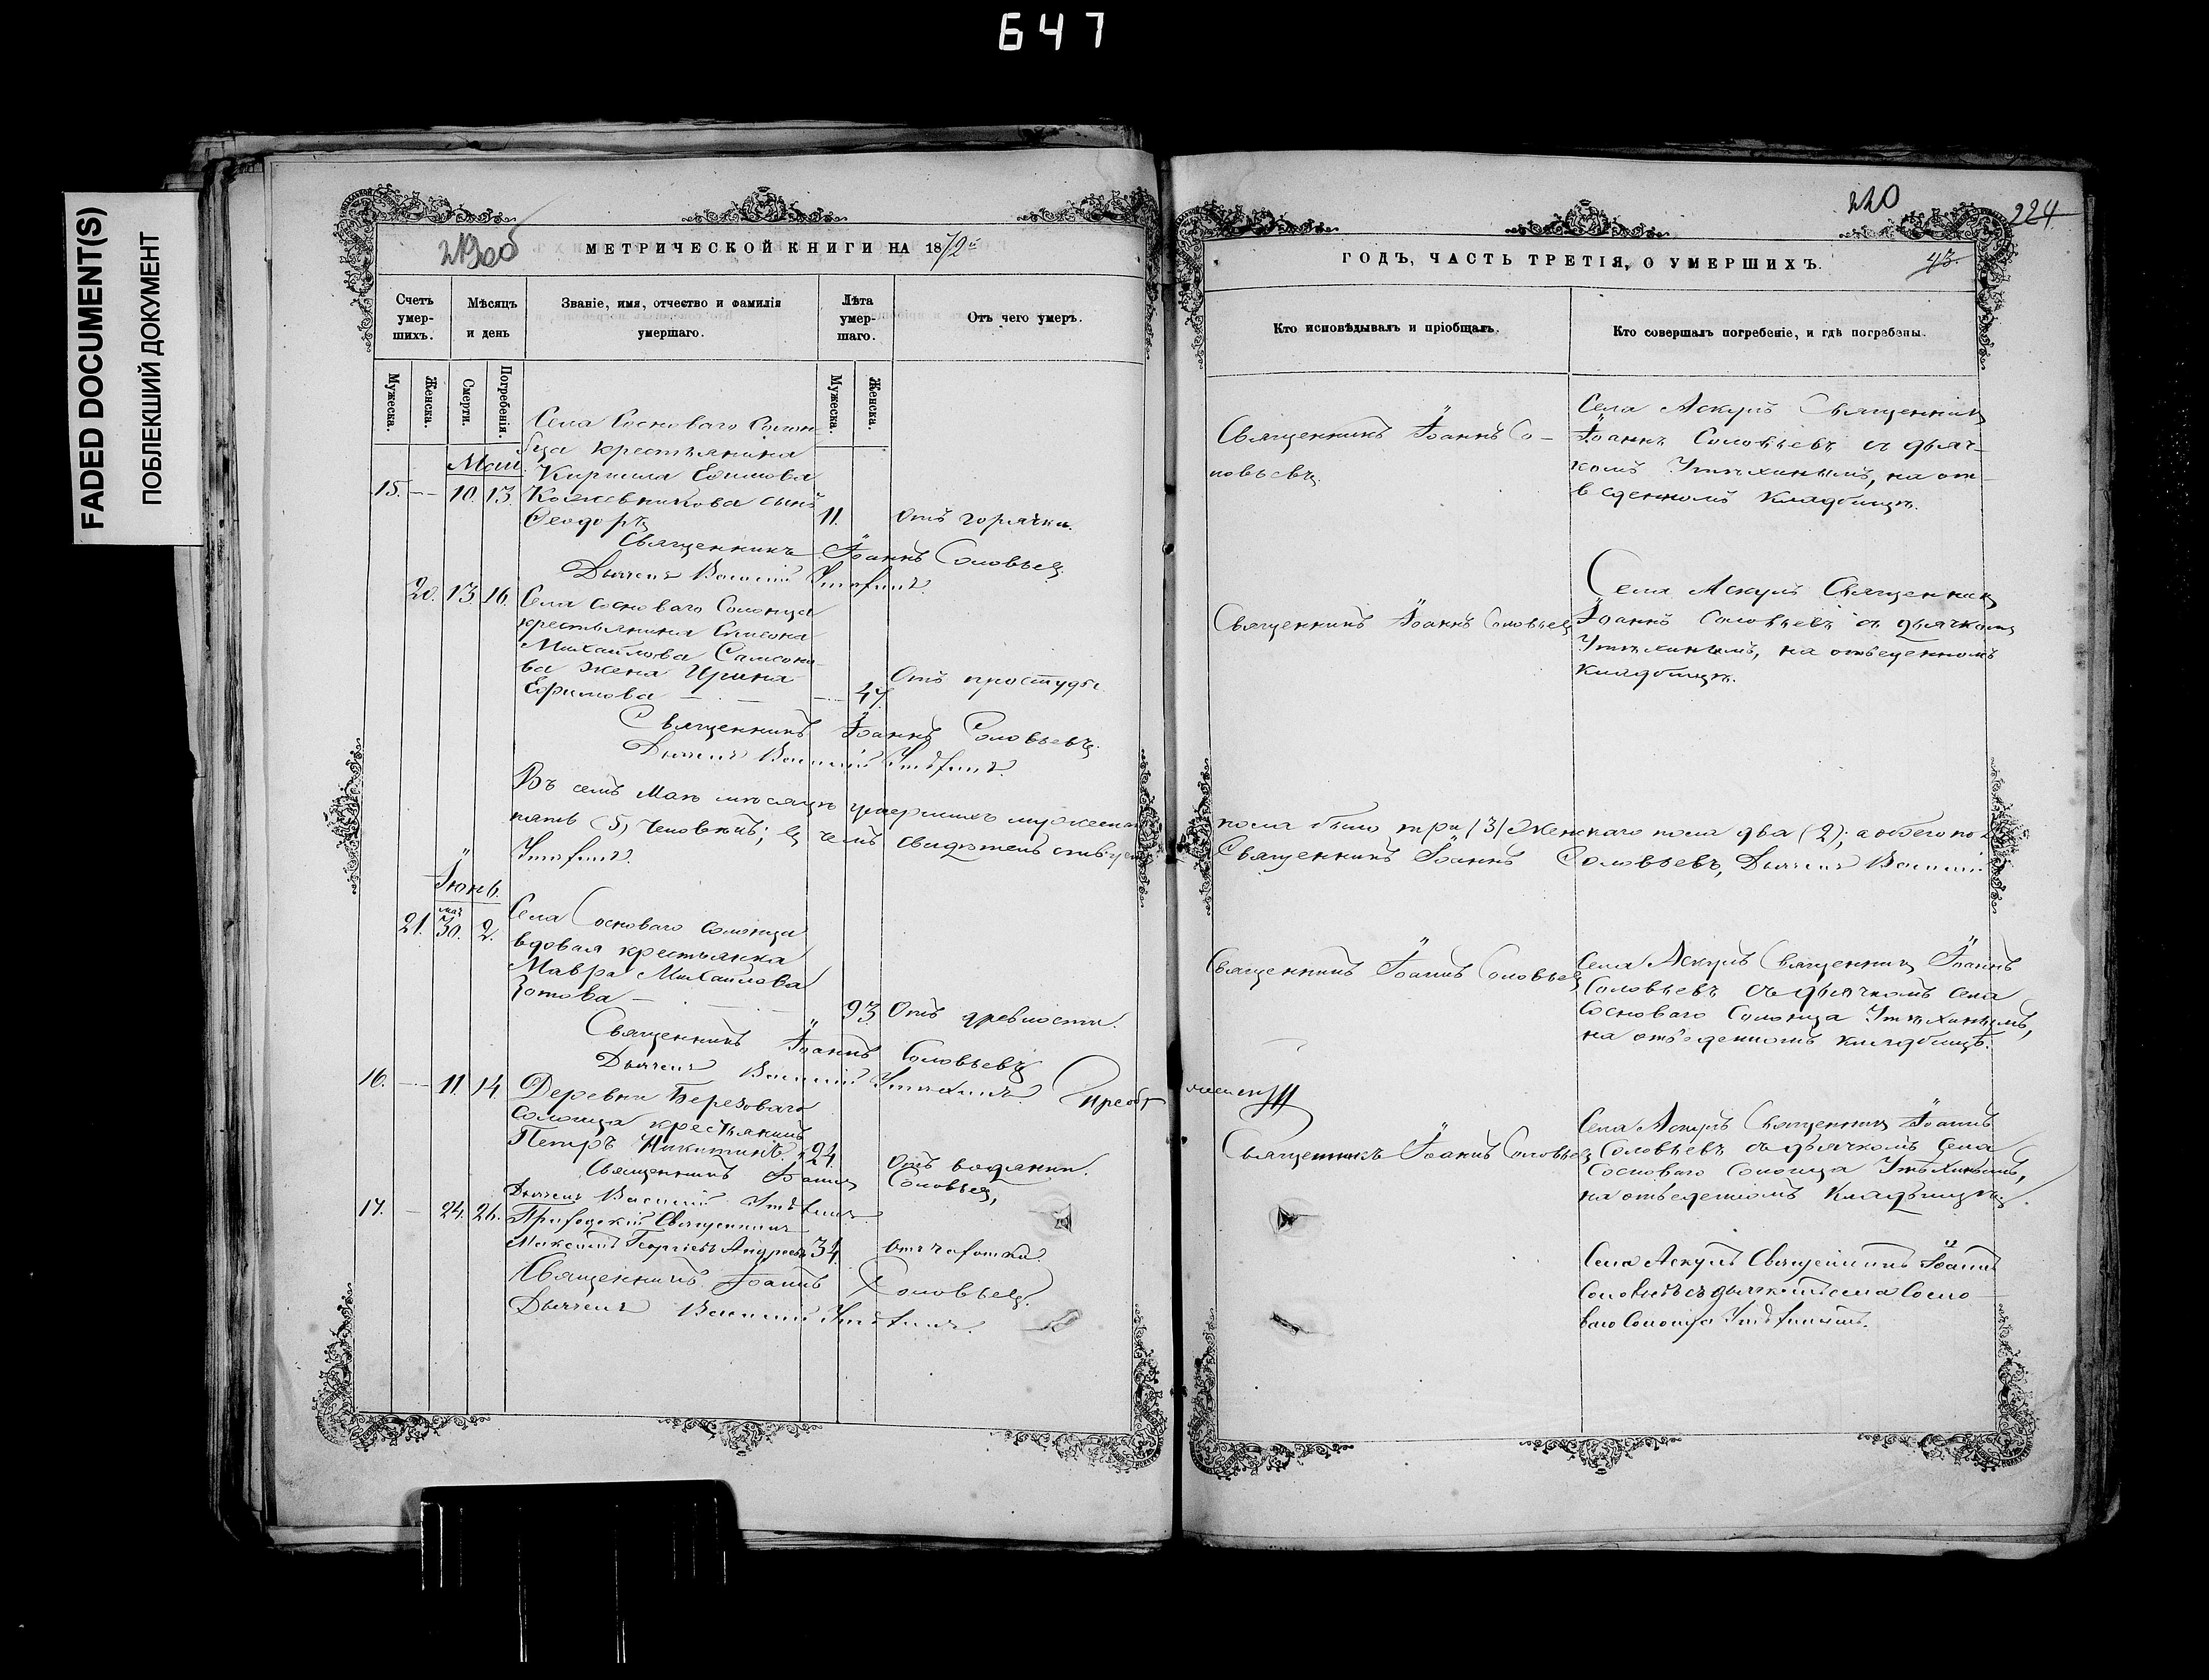 647
FADED DOCUMENT(S)
ПОБЛЕКШИЙ ДОКУМЕНТ
219 об
МЕТРИЧЕСКОЙ КНИГИ НА 1872й
Счетъ умер-шихъ.
Мѣсяцъ и день
Званіе, имя, отчество и фамилія умершаго.
Лѣта умер-шаго.
Отъ чего умеръ.
Мужеска.
Женска.
Смерти.
Погребенія.
Мужеска.
Женска.
Села Сосноваго Солон-
ца крестьянина
Май.
Кирилла Ефимова
15. — 10. 13. Кожевникова сынъ
Ѳеодоръ 11. Отъ горячки.
Священникъ Іоаннъ Соловьевъ
Дьячекъ Василій Утѣхинъ.
20. 13. 16. Села Сосноваго Солонца
крестьянина Симеона
Михайлова Самсоно-
ва жена Ирина
Ефимова — — 47. Отъ простуды
Священникъ Іоаннъ Соловьевъ.
Дьячекъ Василій Утѣхинъ.
Въ семъ Маѣ мѣсяцѣ умершихъ мужеска
пять (5) человѣкъ; въ чемъ свидѣтельствуемъ
Утѣхинъ.
Іюнь.
мая
21. 30. 2. Села Сосноваго Солонца
вдовая крестьянка
Мавра Михайлова
Зотова — — 93. Отъ древности.
Священникъ Іоаннъ Соловьевъ
Дьячекъ Василій Утѣхинъ.
16. — 11. 14. Деревни Березоваго
Солонца крестьянинъ
Петръ Никитинъ. 24. Отъ водянки.
Священникъ Іоаннъ Соловьевъ,
Дьячекъ Василій Утѣхинъ.
17. — 24. 26. Приходскій Священникъ
Максимъ Георгіевъ Андреевъ 34. отъ чахотки.
Священникъ Іоаннъ Соловьевъ.
Дьячекъ Василій Утѣхинъ.
220
224
ГОДЪ, ЧАСТЬ ТРЕТІЯ, О УМЕРШИХЪ.
43.
Кто исповѣдывалъ и пріобщалъ.
Кто совершалъ погребеніе, и гдѣ погребены.
Священникъ Іоаннъ Со-
ловьевъ.
Села Аскулъ Священникъ
Іоаннъ Соловьевъ съ дьяч-
комъ Утѣхинымъ, на от-
веденномъ кладбищѣ.
Священникъ Іоаннъ Соловьевъ
Села Аскулъ Священникъ
Іоаннъ Соловьевъ съ дьячкомъ
Утѣхинымъ, на отведенномъ
кладбищѣ.
пола было три (3) женскаго пола два (2); а обоего по-
Священникъ Іоаннъ Соловьевъ, Дьячекъ Василій
Священникъ Іоаннъ Соловьевъ
Села Аскулъ Священникъ Іоаннъ
Соловьевъ съ дьячкомъ села
Сосноваго Солонца Утѣхинымъ,
на отведенномъ кладбищѣ.
Священникъ Іоаннъ Соловьевъ
Села Аскулъ Священникъ Іоаннъ
Соловьевъ съ дьячкомъ села
Сосноваго Солонца Утѣхинымъ,
на отведенномъ кладбищѣ.
Села Аскулъ Священникъ Іоаннъ
Соловьевъ съ дьячкомъ села Сосно-
ваго Солонца Утѣхинымъ.